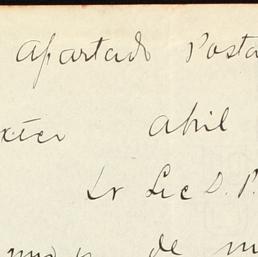 Apartado Posta
xico abril
Sr Lic D. P.
de m